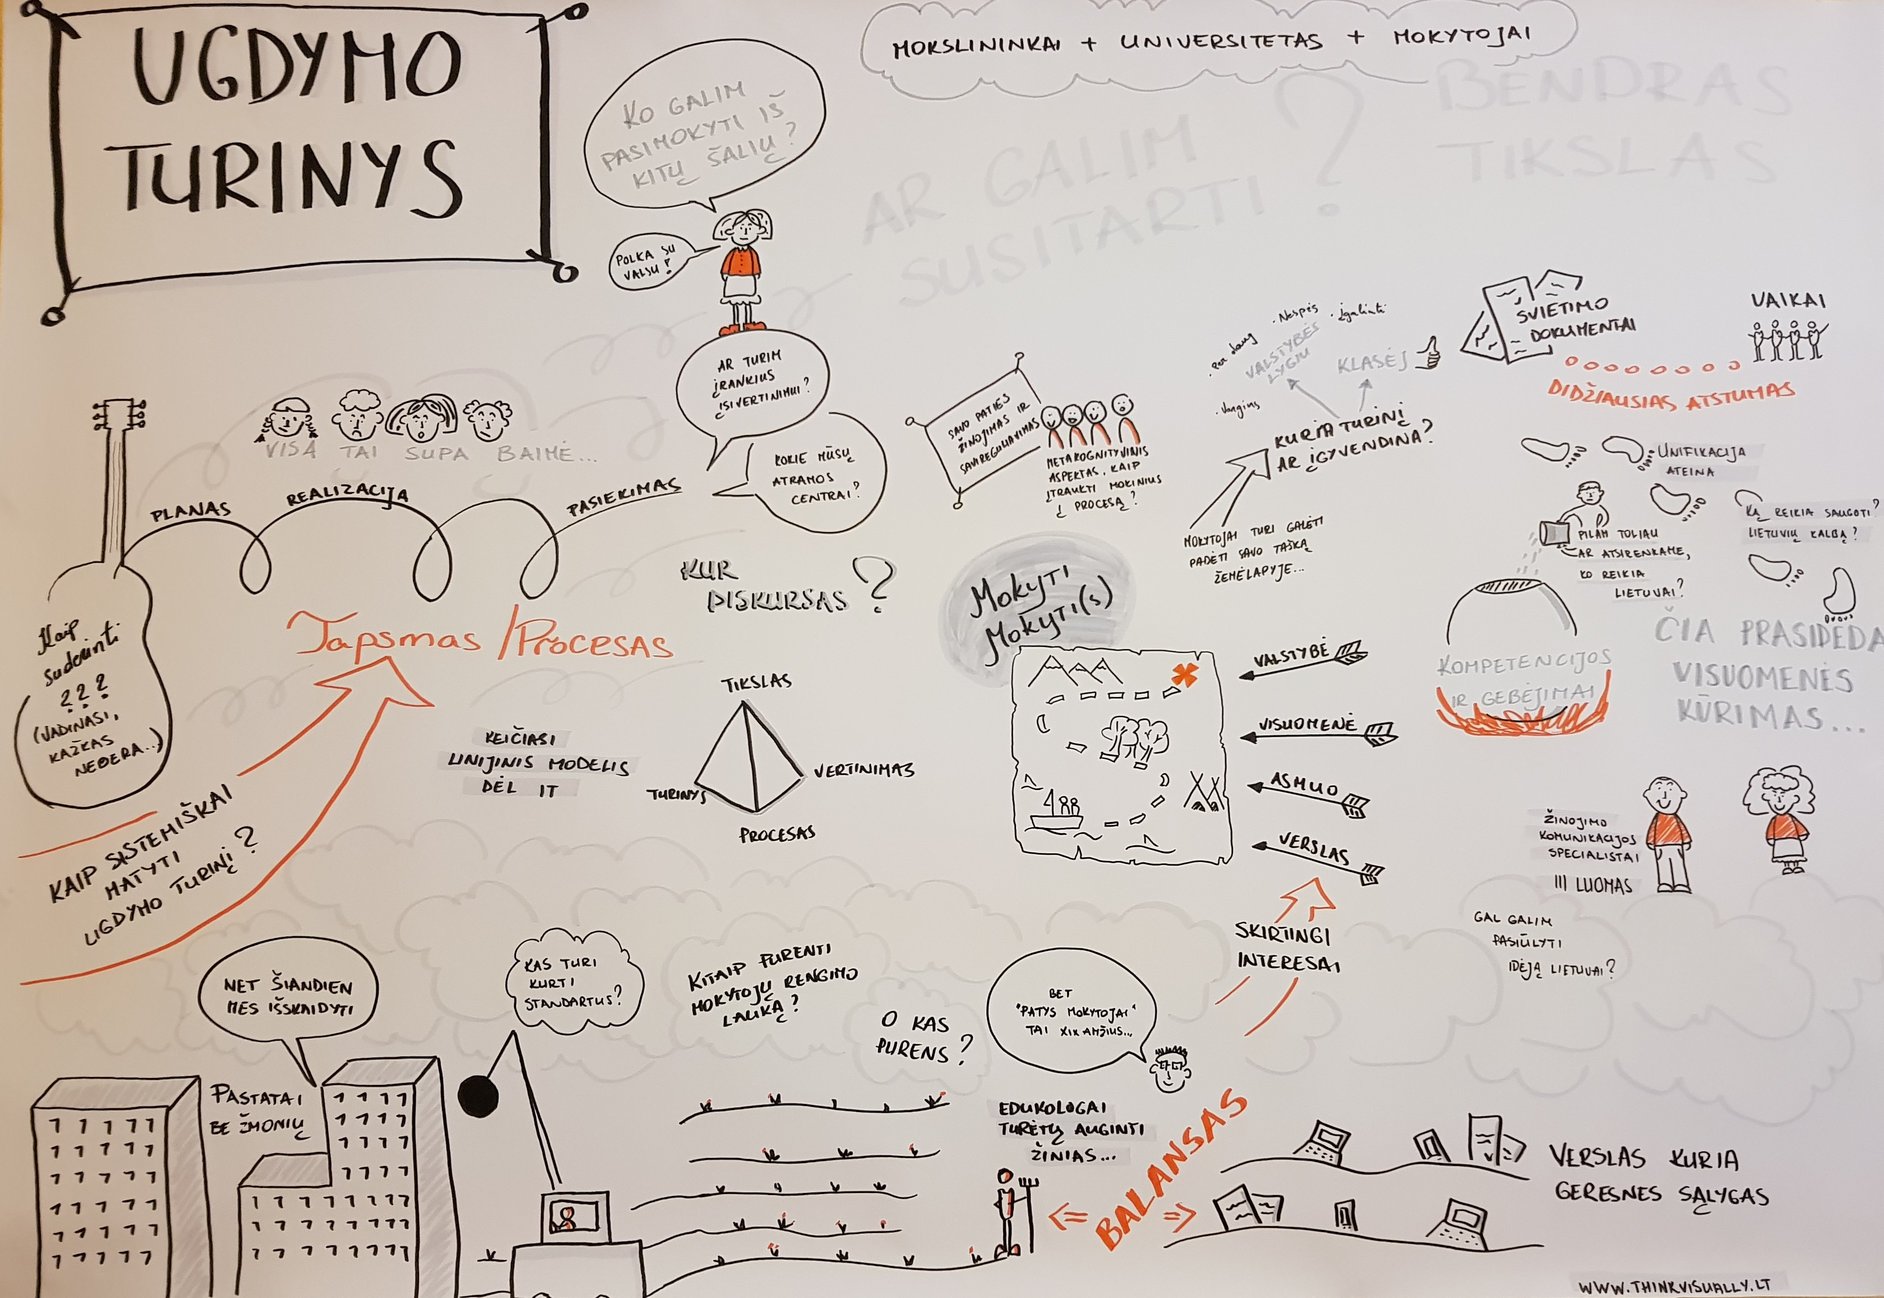 UGDYMO
TURINYS
KO GALIM
PASIMOKYTI IŠ
KITŲ ŠALIŲ?
POLKA SU
VALSU!
MOKSLININKAI + UNIVERSITETAS + MOKYTOJAI
AR GALIM
SUSITARTI?
BENDRAS
TIKSLAS
AR TURIM
ĮRANKIUS
ĮSIVERTINIMUI?
KOKIE MŪSŲ
ATRAMOS
CENTRAI?
VISA TAI SUPA BAIMĖ...
PLANAS
REALIZACIJA
PASIEKIMAS
Kaip
suderinti
???
(VADINASI,
KAŽKAS
NEDERA...)
Tapsmas / Procesas
KAIP SISTEMIŠKAI
MATYTI
UGDYMO TURINĮ?
KUR
DISKURSAS?
KEIČIASI
LINIJINIS MODELIS
DĖL IT
TIKSLAS
TURINYS
VERTINIMAS
PROCESAS
SAVO PATIES
ŽINOJIMAS IR
SAVIREGULIAVIMAS
METAKOGNITYVINIS
ASPEKTAS, KAIP
ĮTRAUKTI MOKINIUS
Į PROCESĄ?
. Per daug
. Nespės
. Įgalinti
. Vangius
VALSTYBĖS
LYGIU
KLASĖJ
KURIA TURINĮ
AR ĮGYVENDINA?
MOKYTOJAI TURI GALĖTI
PADĖTI SAVO TAŠKĄ
ŽEMĖLAPYJE...
ŠVIETIMO
DOKUMENTAI
VAIKAI
DIDŽIAUSIAS ATSTUMAS
UNIFIKACIJA
ATEINA
KĄ REIKIA SAUGOTI?
LIETUVIŲ KALBĄ?
PILAM TOLIAU
AR ATSIRENKAME,
KO REIKIA
LIETUVAI?
KOMPETENCIJOS
IR GEBĖJIMAI
ČIA PRASIDEDA
VISUOMENĖS
KŪRIMAS...
Mokyti
Mokyti(s)
VALSTYBĖ
VISUOMENĖ
ASMUO
VERSLAS
SKIRTINGI
INTERESAI
ŽINOJIMO
KOMUNIKACIJOS
SPECIALISTAI
III LUOMAS
GAL GALIM
PASIŪLYTI
IDĖJĄ LIETUVAI?
NET ŠIANDIEN
MES IŠSKAIDYTI
PASTATAI
BE ŽMONIŲ
KAS TURI
KURTI
STANDARTUS?
KITAIP PURENTI
MOKYTOJŲ RENGIMO
LAUKĄ?
O KAS
PURENS?
BET
"PATYS MOKYTOJAI"
TAI XIX AMŽIUS...
EDUKOLOGAI
TURĖTŲ AUGINTI
ŽINIAS...
BALANSAS
VERSLAS KURIA
GERESNES SĄLYGAS
WWW.THINKVISUALLY.LT